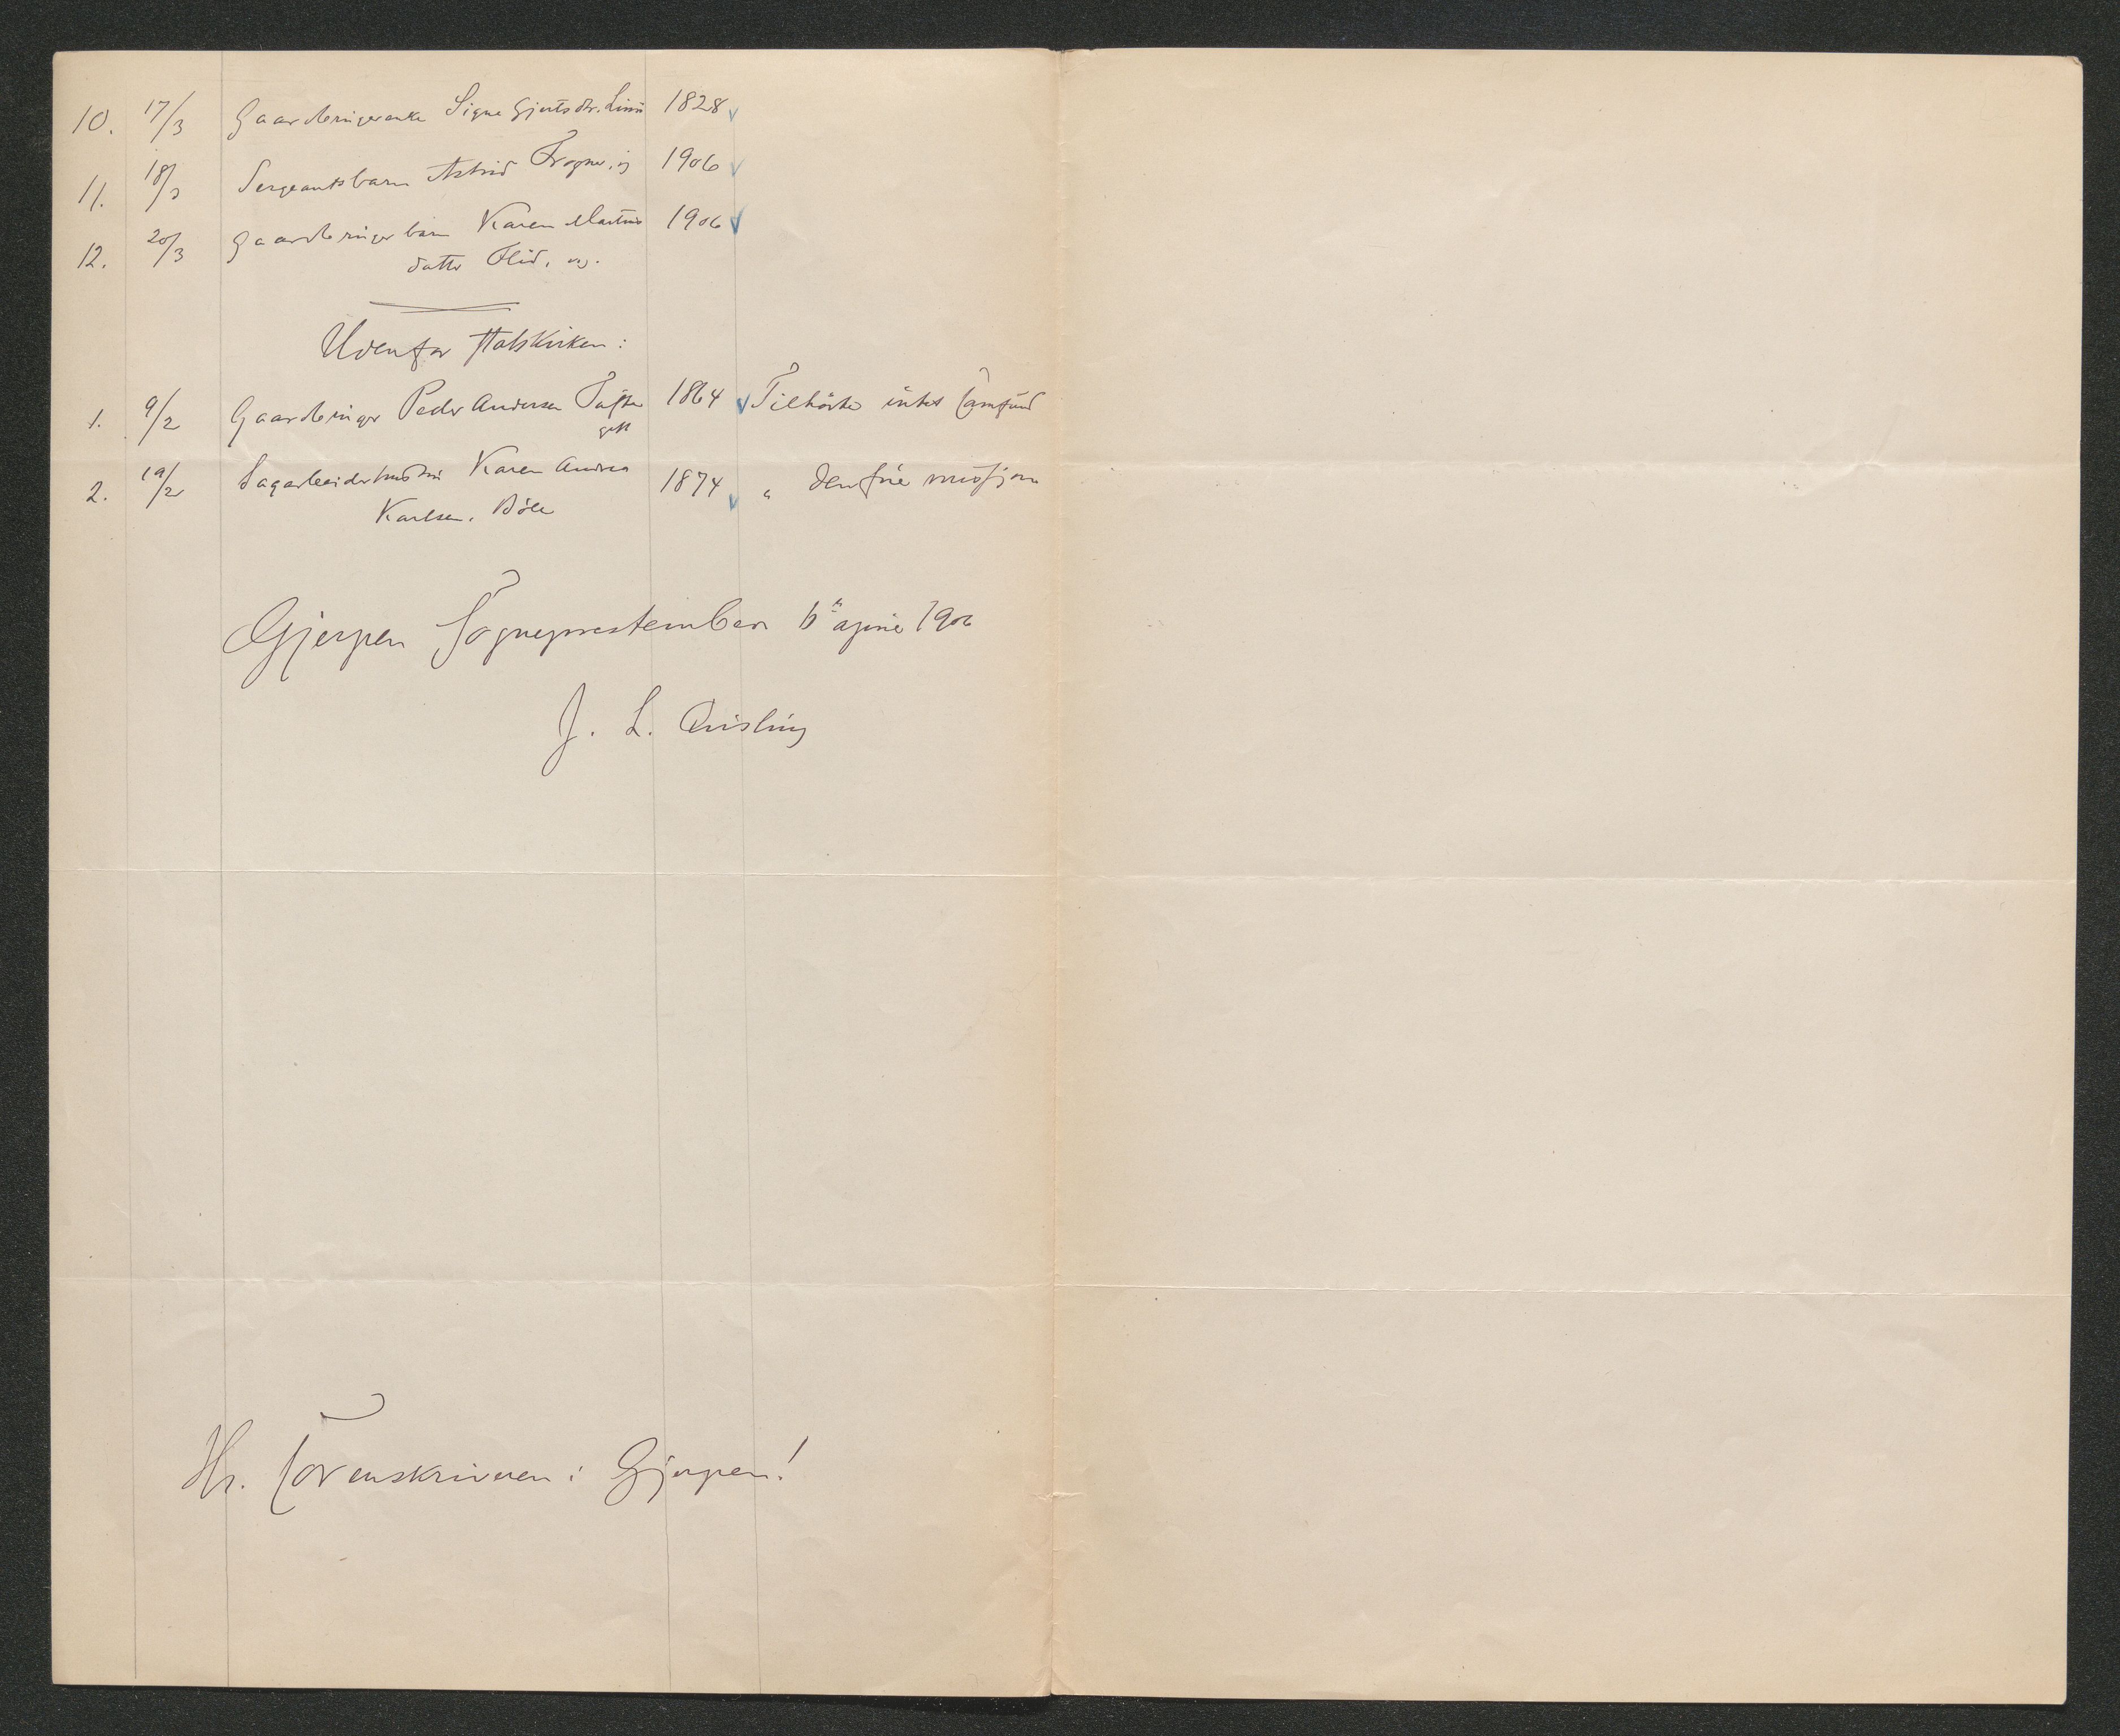 10. 17/3 Gaardbrugerenke Signe Gjertsdtr. Limi 1828
11. 18/3 Sergeantsbarn Astrid Frogner, 1906
12. 20/3 Gaardbrugerbarn Karen Martins 1906
datter Flid,
Udenfor Statskirken:
1. 9/2 Gaardbruger Peder Andersen Tufte 1864 Tilhørte intet Samfund
2. 19/2 Sagarbeiderhustru Karen Andrea 1874 " den frie missjon
Karlsen. Bøle
Gjerpen Sogneprestembede april 1906
J. L. Qvisling
Hr. Sorenskriveren i Gjerpen!